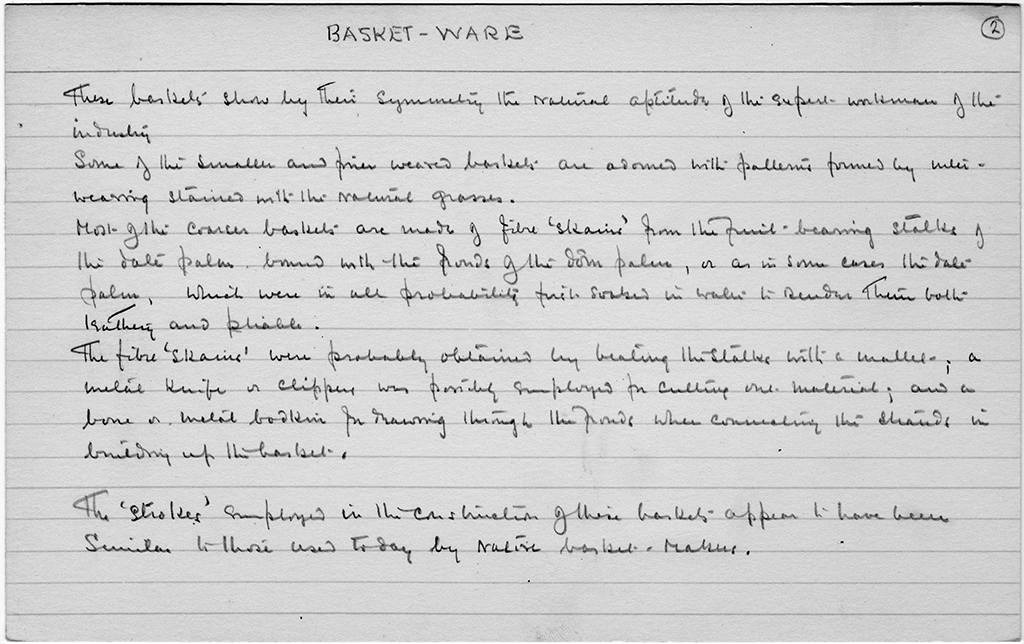 BASKET-WARE
2
These baskets show by their symmetry the natural aptitude of the expert workman of the
industry
Some of the smaller and finer weaved baskets are adorned with patterns formed by inter-
weaving stained with the natural grasses.
Most of the coarser baskets are made of fibre 'skains' from the fruit-bearing stalks of
the date palm bound with the fronds of the dôm palm, or as in some cases the date
palm, which were in all probability first soaked in water to render them both
leathery and pliable.
The fibre 'skains' were probably obtained by beating the stalks with a mallet; a
metal knife or clippers was possibly employed for cutting one material; and a
bone or metal bodkin for drawing through the fronds when connecting the strands in
building up the basket.
The 'strokes' employed in the construction of these baskets appear to have been
similar to those used today by native basket-makers.